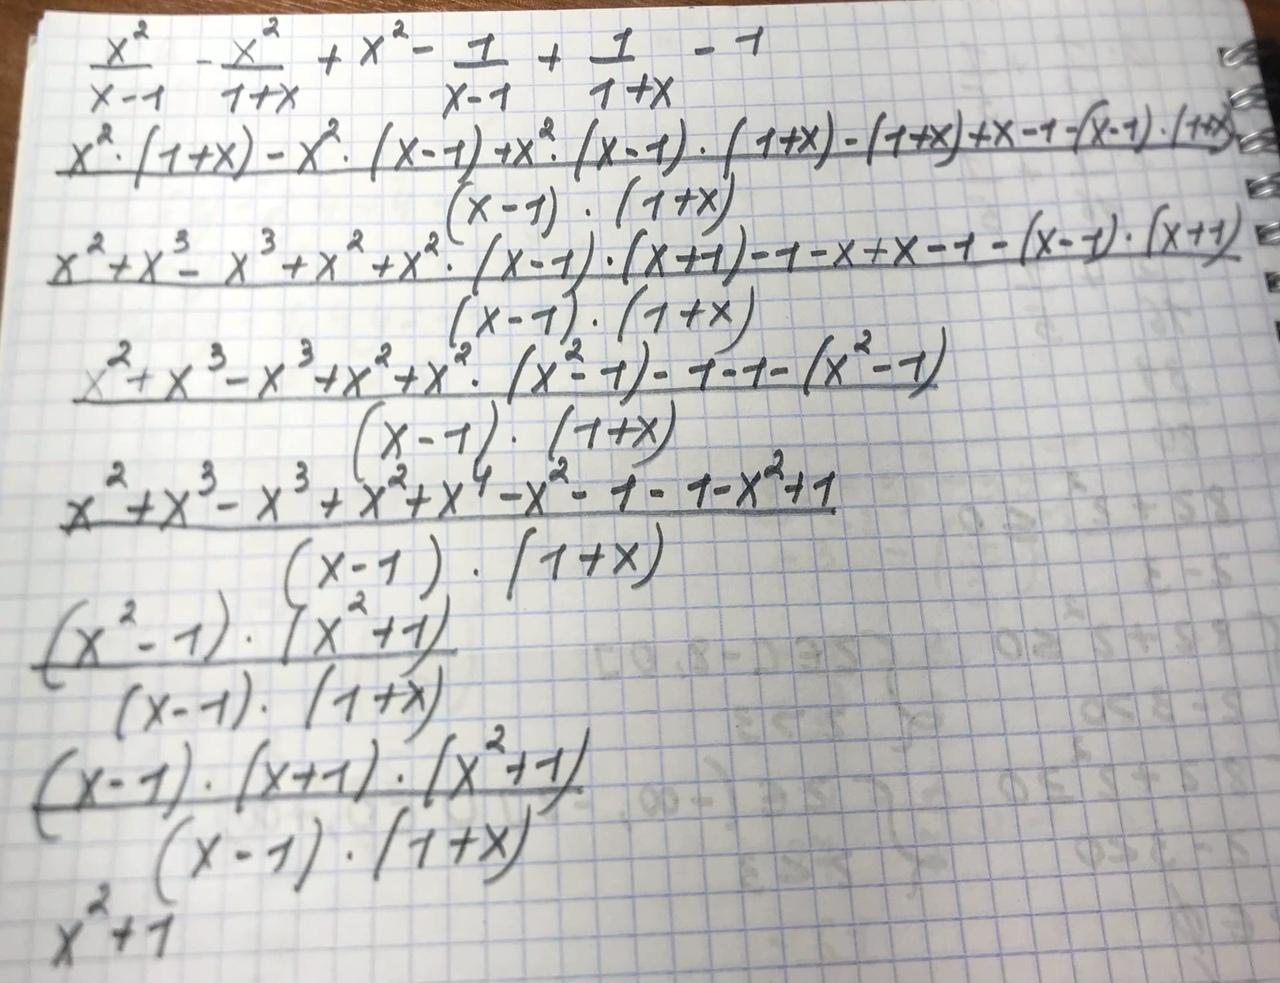 x²/(x-1) - x²/(1+x) + x² - 1/(x-1) + 1/(1+x) - 1
(x²·(1+x)-x²·(x-1)+x²·(x-1)·(1+x)-(1+x)+x-1-(x-1)·(1+x))/((x-1)·(1+x))
(x²+x³-x³+x²+x²·(x-1)·(x+1)-1-x+x-1-(x-1)·(x+1))/((x-1)·(1+x))
(x²+x³-x³+x²+x²·(x²-1)-1-1-(x²-1))/((x-1)·(1+x))
(x²+x³-x³+x²+x⁴-x²-1-1-x²+1)/((x-1)·(1+x))
((x²-1)·(x²+1))/((x-1)·(1+x))
((x-1)·(x+1)·(x²+1))/((x-1)·(1+x))
x²+1